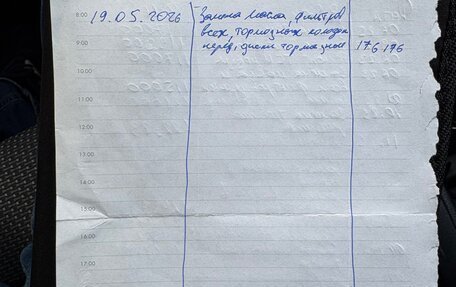 8:00 19.05.2026 Замена масла, фильтров
всех, тормозных колодок
9:00 перед, диски тормозные 176 196
10:00
11:00
12:00
13:00
14:00
15:00
16:00
17:00